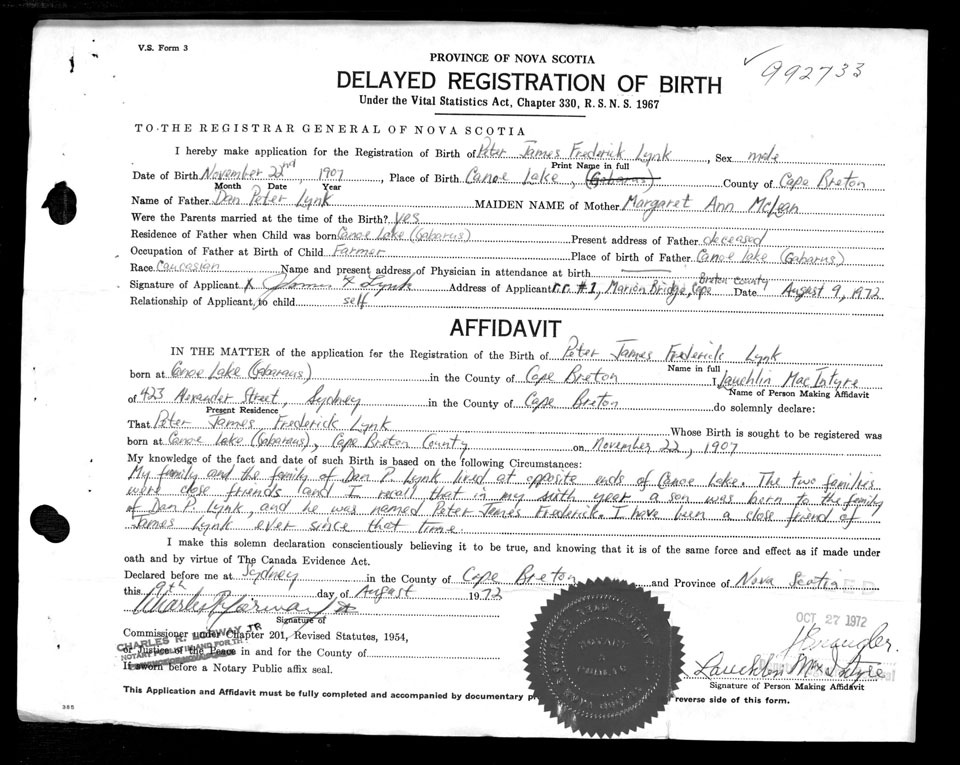 V.S. Form 3
992733
PROVINCE OF NOVA SCOTIA
DELAYED REGISTRATION OF BIRTH
Under the Vital Statistics Act, Chapter 330, R. S. N. S. 1967
TO THE REGISTRAR GENERAL OF NOVA SCOTIA
I hereby make application for the Registration of Birth of Peter James Frederick Lynk, Sex male
Print Name in full
Date of Birth November 22nd, 1907, Place of Birth Canoe Lake, (Gabarus) County of Cape Breton
Month Date Year
Name of Father Dan Peter Lynk MAIDEN NAME of Mother Margaret Ann McLean
Were the Parents married at the time of the Birth? yes
Residence of Father when Child was born Canoe Lake (Gabarus) Present address of Father deceased
Occupation of Father at Birth of Child Farmer Place of birth of Father Canoe Lake (Gabarus)
Race Caucasian Name and present address of Physician in attendance at birth
Signature of Applicant X James F Lynk Address of Applicant r.r. #1, Marion Bridge, Cape Breton County Date August 9, 1972
Relationship of Applicant to child self
AFFIDAVIT
IN THE MATTER of the application for the Registration of the Birth of Peter James Frederick Lynk
Name in full
born at Canoe Lake (Gabaraus) in the County of Cape Breton I Lauchlin MacIntyre
Name of Person Making Affidavit
of 423 Alexander Street, Sydney in the County of Cape Breton do solemnly declare:
Present Residence
That Peter James Frederick Lynk Whose Birth is sought to be registered was
born at Canoe Lake (Gabaraus), Cape Breton County on November 22, 1907
My knowledge of the fact and date of such Birth is based on the following Circumstances:
My family and the family of Dan P. Lynk lived at opposite ends of Canoe Lake. The two families
were close friends and I recall that in my sixth year a son was born to the family
of Dan P. Lynk, and he was named Peter James Frederick. I have been a close friend of
James Lynk ever since that time.
I make this solemn declaration conscientiously believing it to be true, and knowing that it is of the same force and effect as if made under
oath and by virtue of The Canada Evidence Act.
Declared before me at Sydney in the County of Cape Breton and Province of Nova Scotia
this 9th day of August 1972
OCT 27 1972
Signature of
Commissioner under Chapter 201, Revised Statutes, 1954,
CHARLES R. LORWAY JR
or Justice of the Peace in and for the County of
If sworn before a Notary Public affix seal.
Lauchlin MacIntyre
Signature of Person Making Affidavit
This Application and Affidavit must be fully completed and accompanied by documentary reverse side of this form.
385